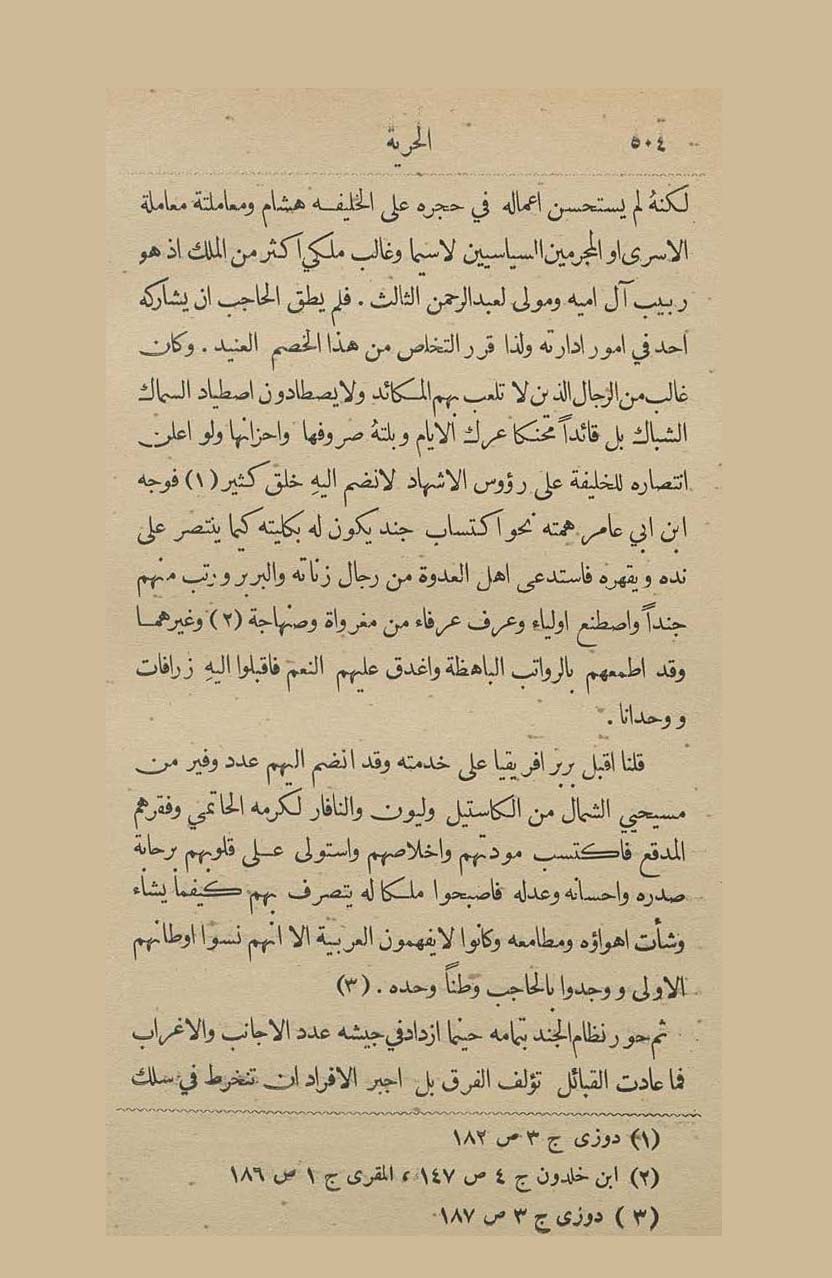 ٥٠٤ الحرية
لكنهُ لم يستحسن اعماله في حجره على الخليفه هشام ومعاملتة معاملة
الاسرى او المجرمين السياسيين لاسيما وغالب ملكي اكثر من الملك اذ هو
ربيب آل اميه ومولى لعبدالرحمن الثالث . فلم يطق الحاجب ان يشاركه
احد في امور ادارته ولذا قرر التخلص من هذا الخصم العنيد . وكان
غالب من الرجال الذين لا تلعب بهم المكائد ولا يصطادون اصطياد السماك
الشباك بل قائداً محنكا عرك الايام وبلتهُ صروفها واحزانها ولو اعلن
انتصاره للخليفة على رؤوس الاشهاد لانضم اليهِ خلق كثير (١) فوجه
ابن ابي عامر همته نحو اكتساب جند يكون له بكليته كيما ينتصر على
نده ويقهره فاستدعى اهل العدوة من رجال زناته والبربر ورتب منهم
جنداً واصطنع اولياء وعرف عرفاء من مغرواة وصنهاجة (٢) وغيرهما
وقد اطمعهم بالرواتب الباهظة واغدق عليهم النعم فاقبلوا اليهِ زرافات
و وحدانا .
قلنا اقبل بربر افريقيا على خدمته وقد انضم اليهم عدد وفير من
مسيحيي الشمال من الكاستيل وليون والنافار لكرمه الحاتمي وفقرهم
المدقع فاكتسب مودتهم واخلاصهم واستولى على قلوبهم برحابة
صدره واحسانه وعدله فاصبحوا ملكا له يتصرف بهم كيفما يشاء
وشأت اهواؤه ومطامعه وكانوا لا يفهمون العربية الا انهم نسوا اوطانهم
الاولى و وجدوا بالحاجب وطناً وحده . (٣)
ثم حور نظام الجند بتمامه حينما ازداد في جيشه عدد الاجانب والاغراب
فما عادت القبائل تؤلف الفرق بل اجبر الافراد ان تنخرط في سلك
(١) دوزى ج ٣ ص ١٨٢
(٢) ابن خلدون ج ٤ ص ١٤٧ ، المقرى ج ١ ص ١٨٦
(٣) دوزى ج ٣ ص ١٨٧